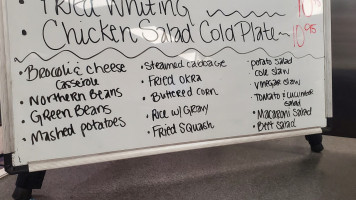 Fried Whiting
Chicken Salad Cold Plate~ 10.95
• Broccoli & cheese
Casserole
• Northern Beans
Green Beans
• Mashed potatoes
• Steamed cabbage
• Fried OKra
• Buttered Corn
• Rice w/ Gravy
• Fried Squash
• potato Salad
• Cole slaw
• Vinegar slaw
• Tomato & cucumber
salad
• Macaroni Salad
• Beet Salad